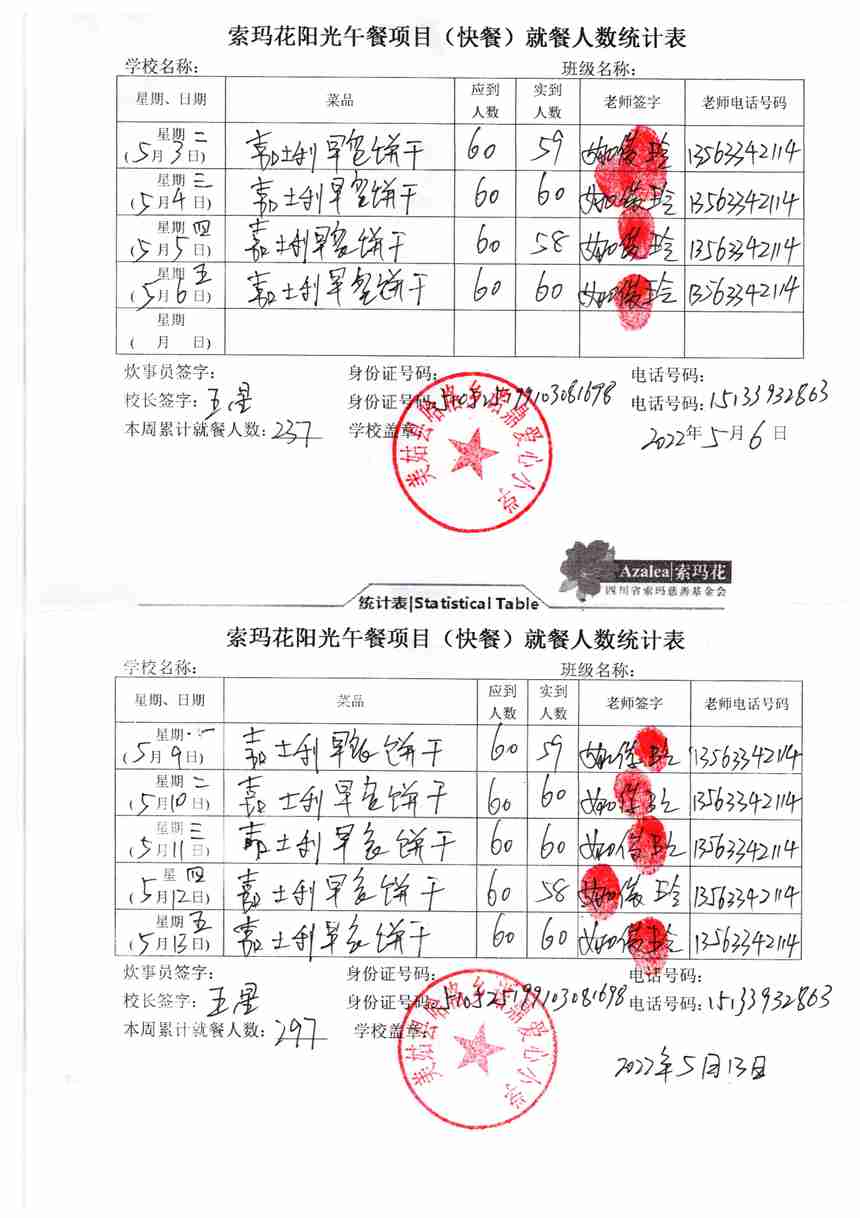 索玛花阳光午餐项目（快餐）就餐人数统计表
学校名称： 班级名称：
星期、日期 菜品 应到人数 实到人数 老师签字 老师电话号码
星期二 (5月3日) 嘉士利早餐饼干 60 59 13563342114
星期三 (5月4日) 嘉士利早餐饼干 60 60 13563342114
星期四 (5月5日) 嘉士利早餐饼干 60 58 13563342114
星期五 (5月6日) 嘉士利早餐饼干 60 60 13563342114
星期 ( 月 日)
炊事员签字： 身份证号码： 电话号码：
校长签字：王星 身份证号码： 电话号码：15133932863
本周累计就餐人数：237 学校盖章： 2022年5月6日
爱心小学
Azalea|索玛花
四川省索玛慈善基金会
统计表|Statistical Table
索玛花阳光午餐项目（快餐）就餐人数统计表
学校名称： 班级名称：
星期、日期 菜品 应到人数 实到人数 老师签字 老师电话号码
星期一 (5月9日) 嘉士利早餐饼干 60 59 13563342114
星期二 (5月10日) 嘉士利早餐饼干 60 60 13563342114
星期三 (5月11日) 嘉士利早餐饼干 60 60 13563342114
星 四 (5月12日) 嘉士利早餐饼干 60 58 13563342114
星期五 (5月13日) 嘉士利早餐饼干 60 60 13563342114
炊事员签字： 身份证号码： 电话号码：
校长签字：王星 身份证号码： 电话号码：15133932863
本周累计就餐人数：297 学校盖章：
爱心小学
2022年5月13日